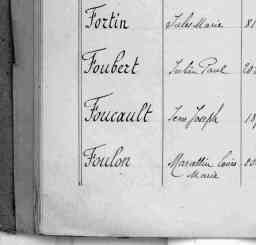 Fortin Jules Marie 81
Foubert Julien Paul 20
Foucault Jean Joseph 18
Foulon Louis
Marie